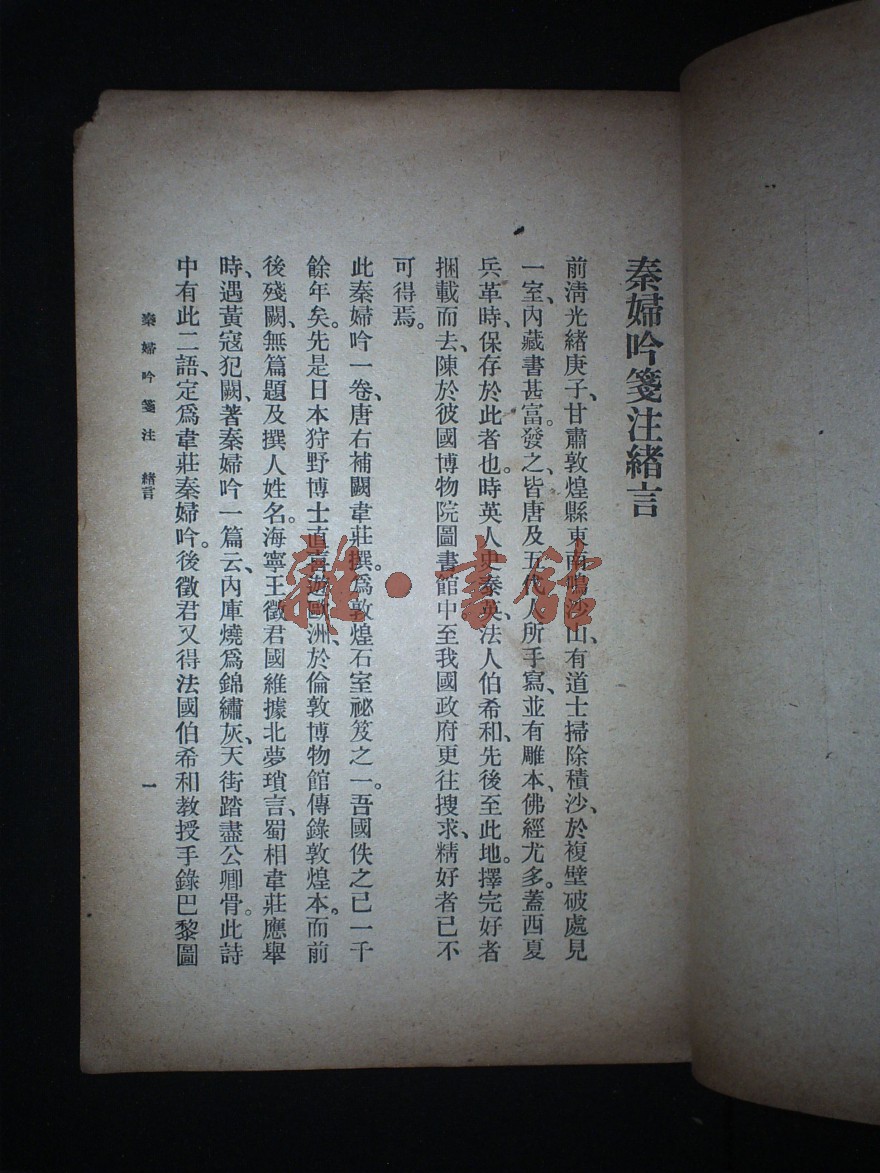 秦婦吟箋注緒言
前淸光緒庚子、甘肅敦煌縣東南鳴沙山、有道士掃除積沙、於複壁破處見
一室、內藏書甚富。發之、皆唐及五代人所手寫、並有雕本、佛經尤多。蓋西夏
兵革時、保存於此者也。時英人史泰英、法人伯希和、先後至此地。擇完好者
捆載而去、陳於彼國博物院圖書館中至我國政府更往搜求、精好者已不
可得焉。
此秦婦吟一卷、唐右補闕韋莊撰。爲敦煌石室祕笈之一。吾國佚之已一千
餘年矣。先是日本狩野博士直喜遊歐洲、於倫敦博物館傳錄敦煌本。而前
後殘闕、無篇題及撰人姓名。海寧王徵君國維據北夢瑣言、蜀相韋莊應舉
時、遇黃寇犯闕、著秦婦吟一篇云、內庫燒爲錦繡灰、天街踏盡公卿骨。此詩
中有此二語、定爲韋莊秦婦吟。後徵君又得法國伯希和教授手錄巴黎圖
秦婦吟箋注 緒言 一
雜·書館